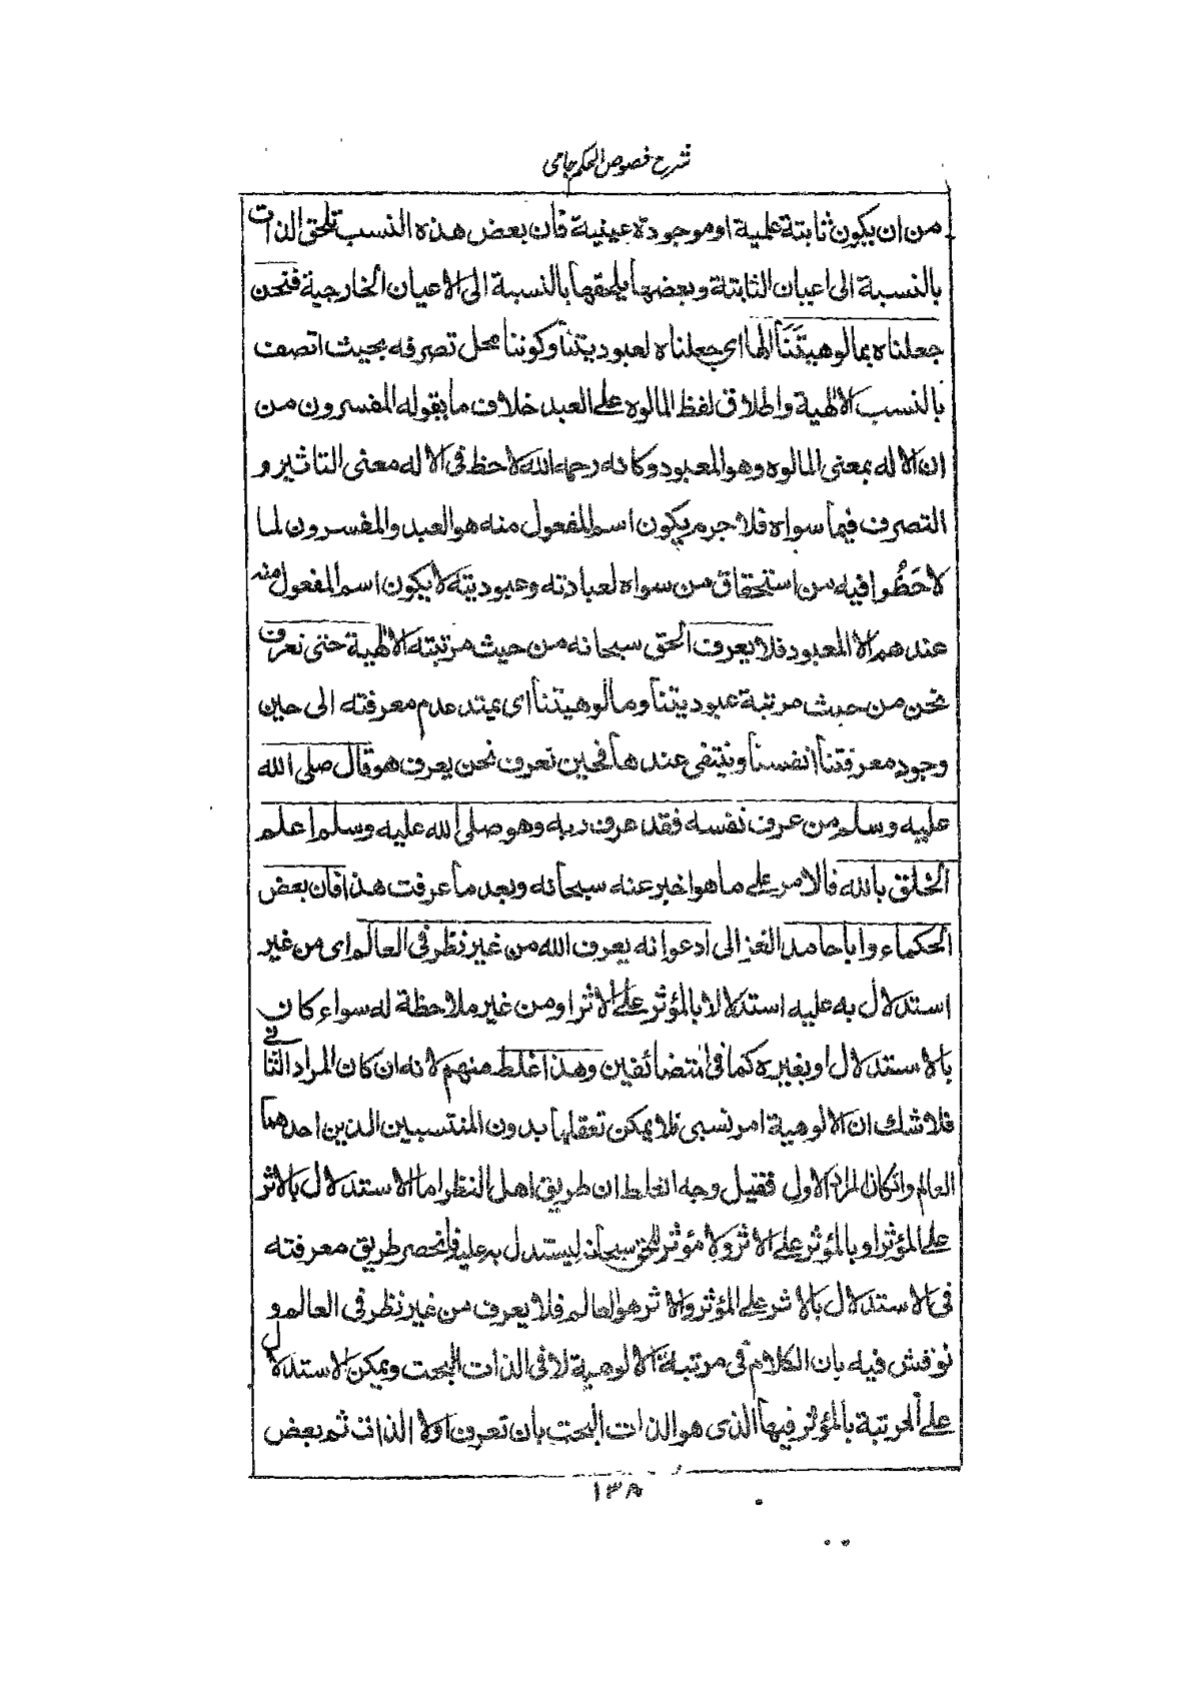 شرح فصوص الحكم جامى
من ان يكون ثابتة علمية او موجودة عينية فان بعض هذه النسب تلحق الذات
بالنسبة الى اعيان الثابتة وبعضها يلحقها بالنسبة الى الاعيان الخارجية فنحن
جعلناه بمالوهيتَنَا الٰها اى جعلناه لعبوديتنا وكوننا محل تصرفه بحيث اتصف
بالنسب الالٰهية واطلاق لفظ المالوه على العبد خلاف ما يقوله المفسرون من
ان الاله بمعنى المالوه وهو المعبود وكانه رحمه الله لاحظ فى الاله معنى التاثير و
التصرف فيما سواه فلا جرم يكون اسم المفعول منه هو العبد والمفسرون لما
لاحَظُوا فيه من استحقاق من سواه لعبادته وعبوديته لا يكون اسم المفعول منه
عندهم الا المعبود فلا يعرف الحق سبحانه من حيث مرتبته الالٰهية حتى نعرف
نحن من حيث مرتبة عبوديتنا ومالوهيتنا اى يمتد عدم معرفته الى حين
وجود معرفتنا انفسنا وينتفى عندها فحين تعرف نحن يعرف هو قال صلى الله
عليه وسلم من عرف نفسه فقد عرف ربه وهو صلى الله عليه وسلم اعلم
الخلق بالله فالامر على ما هو اخبر عنه سبحانه وبعد ما عرفت هذا فان بعض
الحكماء وابا حامد الغزالى ادعوا نه يعرف الله من غير نظر فى العالم اى من غير
استدلال به عليه استدلالا بالمؤثر على الاثر او من غير ملاحظة له سواء كان
بالاستدلال او بغيره كما فى المتضائفين وهذا غلط منهم لانه ان كان المراد الثانى
فلا شك ان الالوهية امر نسبى فلا يمكن تعقلها بدون المنتسبين الذين احدهما
العالم وانكان المراد الاول فقيل وجه الغلط ان طريق اهل النظر اما الاستدلال بالاثر
على المؤثر او بالمؤثر على الاثر ولا مؤثر للحق سبحانه ليستدل به عليه فانحصر طريق معرفته
فى الاستدلال بالاثر على المؤثر والاثر هو العالم فلا يعرف من غير نظر فى العالم و
نوقش فيه بان الكلام فى مرتبة الالوهية لا فى الذات البحت ويمكن الاستدلال
على المرتبة بالمؤثر فيها الذى هو الذات البحت بان تعرف اولا الذات ثم بعض
١٣٨